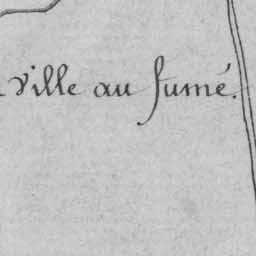 ville au fumé.